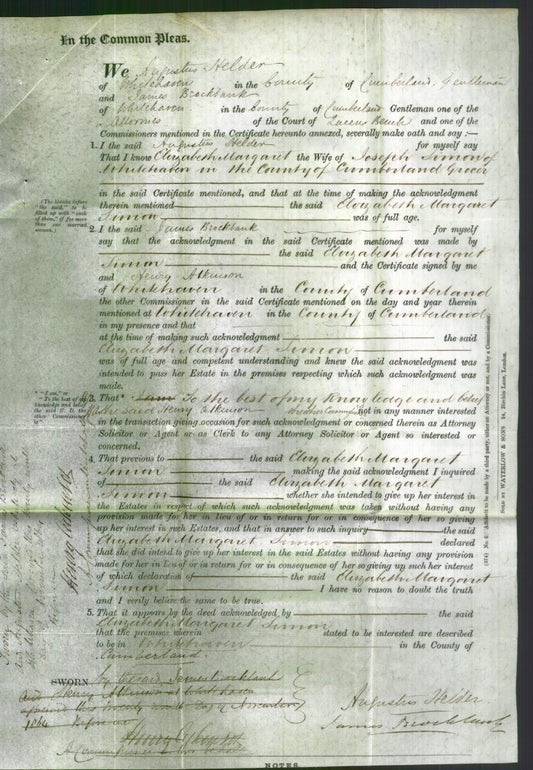 In the Common Pleas.
We Augustus Helder
of Whitehaven in the County of Cumberland, Gentleman
and James Brockbank
of Whitehaven in the County of Cumberland Gentleman one of the
Attornies of the Court of Queens Bench and one of the
Commissioners mentioned in the Certificate hereunto annexed, severally make oath and say :—
1. I the said Augustus Helder for myself say
That I know Elizabeth Margaret the Wife of Joseph Simon of
Whitehaven in the County of Cumberland Grocer
in the said Certificate mentioned, and that at the time of making the acknowledgment
therein mentioned the said Elizabeth Margaret
Simon was of full age.
(The blanks before
"the said," to be
filled up with "each
of them," if for more
than one married
woman.)
2. I the said James Brockbank for myself
say that the acknowledgment in the said Certificate mentioned was made by
the said Elizabeth Margaret
Simon and the Certificate signed by me
and Henry Atkinson
of Whitehaven in the County of Cumberland
the other Commissioner in the said Certificate mentioned on the day and year therein
mentioned at Whitehaven in the County of Cumberland
in my presence and that
at the time of making such acknowledgment the said
Elizabeth Margaret Simon
was of full age and competent understanding and knew the said acknowledgment was
intended to pass her Estate in the premises respecting which such acknowledgment was
made.
* "I am," or
"To the best of my
knowledge and belief
the said C. D. the
other Commissioner
is"
3. That* I am To the best of my knowledge and belief
the said Henry Atkinson not in any manner interested
in the transaction giving occasion for such acknowledgment or concerned therein as Attorney
Solicitor or Agent or as Clerk to any Attorney Solicitor or Agent so interested or
concerned.
4. That previous to the said Elizabeth Margaret
Simon making the said acknowledgment I inquired
of the said Elizabeth Margaret
Simon whether she intended to give up her interest in
the Estates in respect of which such acknowledgment was taken without having any
provision made for her in lieu of or in return for or in consequence of her so giving
up her interest in such Estates, and that in answer to such inquiry the said
Elizabeth Margaret Simon declared
that she did intend to give up her interest in the said Estates without having any provision
made for her in lieu of or in return for or in consequence of her so giving up such her interest
of which declaration of the said Elizabeth Margaret
Simon I have no reason to doubt the truth
and I verily believe the same to be true.
5. That it appears by the deed acknowledged by the said
Elizabeth Margaret Simon
that the premises wherein stated to be interested are described
to be in Whitehaven in the County of
Cumberland.
SWORN by the said James Brockbank
and Henry Atkinson at Whitehaven
November
1864 Before me
Augustus Helder
James Brockbank
NOTES.
(574) No. 6.
SOLD BY WATERLOW & SONS 24, Birchin Lane, London.